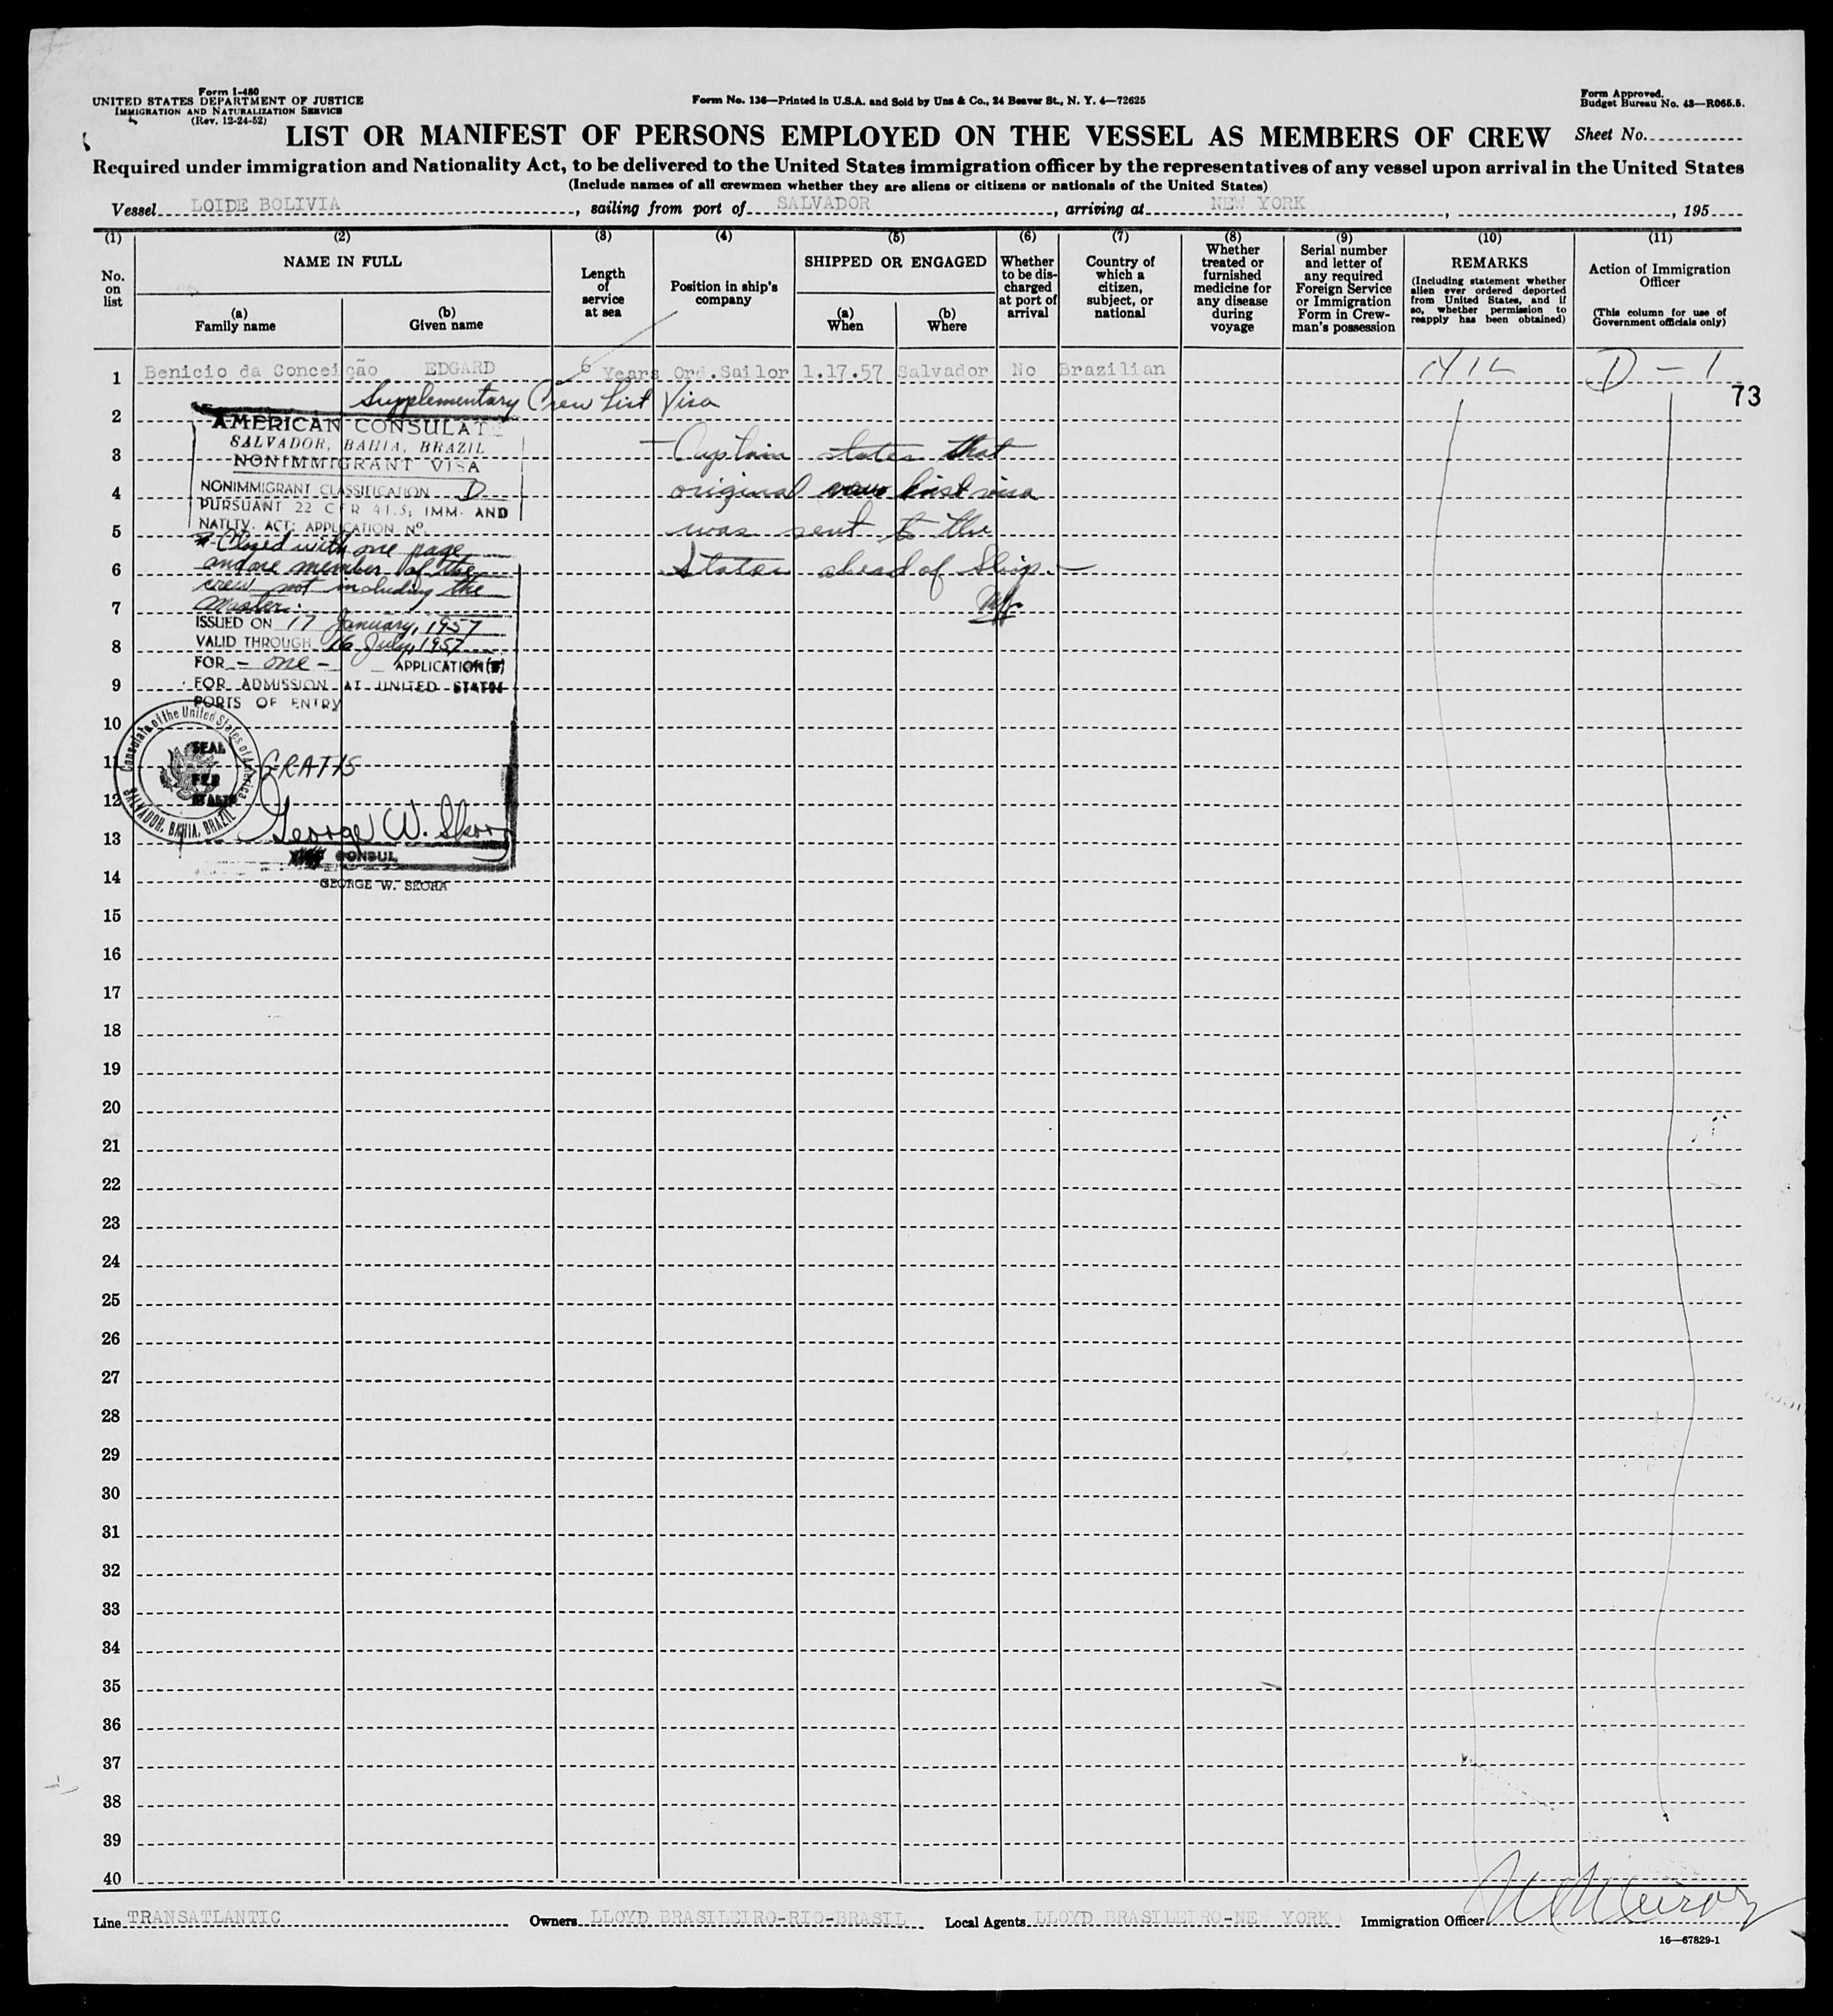 Form I-480
UNITED STATES DEPARTMENT OF JUSTICE
IMMIGRATION AND NATURALIZATION SERVICE
(Rev. 12-24-52)
Form No. 136—Printed in U.S.A. and Sold by Unz & Co., 24 Beaver St., N. Y. 4—72625
Form Approved.
Budget Bureau No. 43—R065.5.
LIST OR MANIFEST OF PERSONS EMPLOYED ON THE VESSEL AS MEMBERS OF CREW
Sheet No.
Required under immigration and Nationality Act, to be delivered to the United States immigration officer by the representatives of any vessel upon arrival in the United States
(Include names of all crewmen whether they are aliens or citizens or nationals of the United States)
Vessel LOIDE BOLIVIA, sailing from port of SALVADOR, arriving at NEW YORK, , 195
(1) (2) (3) (4) (5) (6) (7) (8) (9) (10) (11)
No. on list
NAME IN FULL
(a) Family name
(b) Given name
Length of service at sea
Position in ship's company
SHIPPED OR ENGAGED
(a) When
(b) Where
Whether to be discharged at port of arrival
Country of which a citizen, subject, or national
Whether treated or furnished medicine for any disease during voyage
Serial number and letter of any required Foreign Service or Immigration Form in Crewman's possession
REMARKS
(Including statement whether alien ever ordered deported from United States, and if so, whether permission to reapply has been obtained)
Action of Immigration Officer
(This column for use of Government officials only)
1 Benicio da Conceição EDGARD 6 Years Ord.Sailor 1.17.57 Salvador No Brazilian NIL D-1
73
Supplementary Crew List Visa
AMERICAN CONSULATE
SALVADOR, BAHIA, BRAZIL
NONIMMIGRANT VISA
NONIMMIGRANT CLASSIFICATION D
PURSUANT 22 CFR 41.5; IMM. AND
NATLTY. ACT; APPLICATION Nº
Closed with one page
and one member of the
crew not including the
Master.
ISSUED ON 17 January, 1957
VALID THROUGH 16 July, 1957
FOR - one - APPLICATION(S)
FOR ADMISSION AT UNITED STATES
PORTS OF ENTRY
Consulate of the United States of America
SALVADOR, BAHIA, BRAZIL
SEAL
FEE
STAMP
GRATIS
George W. Skora
CONSUL
GEORGE W. SKORA
— Captain states that
original crew list visa
was sent to the
States ahead of Ship. —
2
3
4
5
6
7
8
9
10
11
12
13
14
15
16
17
18
19
20
21
22
23
24
25
26
27
28
29
30
31
32
33
34
35
36
37
38
39
40
Line TRANSATLANTIC
Owners LLOYD BRASILEIRO-RIO-BRASIL
Local Agents LLOYD BRASILEIRO-NE YORK
Immigration Officer
16—67829-1